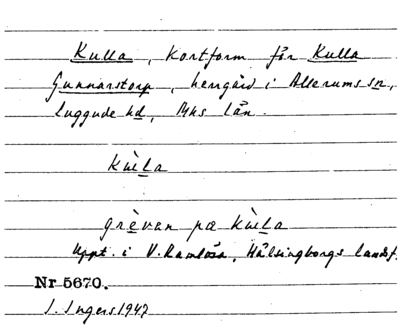 Kulla, kortform för Kulla
Gunnarstorp, herrgård i Allerums sn,
Luggude hd, Mhs län.
kùlla
grèven pæ kùlla
Uppt. i V. Ramlösa, Hälsingborgs landsf.
Nr 5670.
I. Ingers 1947